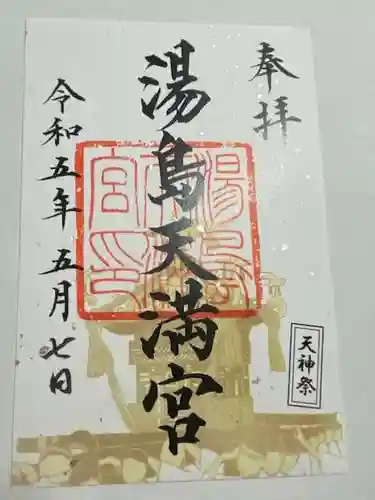 奉拝
湯島天満宮
令和五年五月七日
天神祭
湯島天満宮印